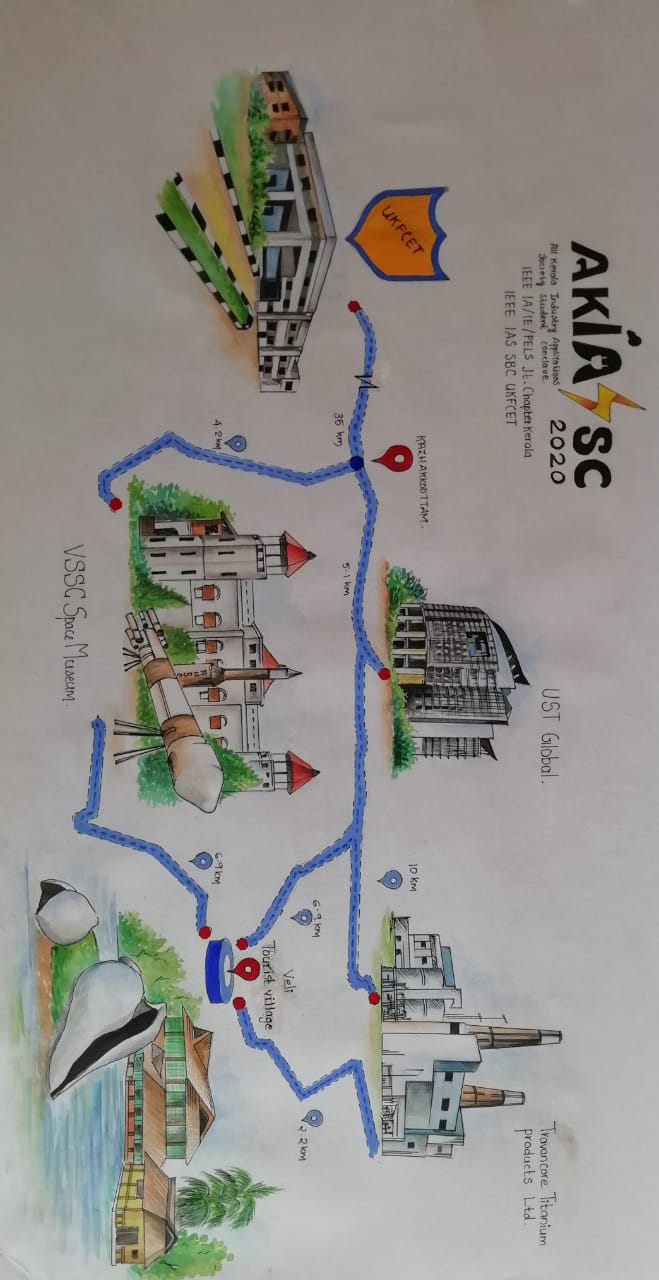 AKIA SC
2020
All Kerala Industry Applications
Society Student Conclave.
IEEE IA/IE/PELS Jt. Chapter Kerala
IEEE IAS SBC UKFCET
UKFCET
35 km
KAZHAKKOOTTAM.
4.2 km
5.1 km
UST Global.
VSSC Space Museum.
10 km
6.9 km
6.9 km
Veli
Tourist village
2.2 km
Travancore Titanium
products Ltd.